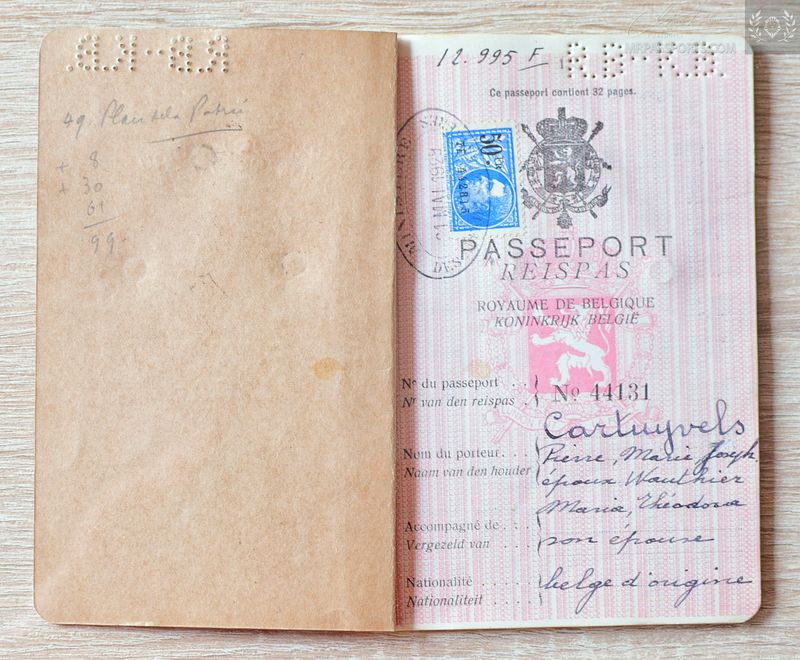 49. Plan de la Patrie
+ 8
+ 30
61
99.
12.995 F
R.B-K.B.
MRPASSPORTS.COM
Ce passeport contient 32 pages.
MINISTÈRE DES
MAI 1923
50
PASSEPORT
REISPAS
ROYAUME DE BELGIQUE
KONINKRIJK BELGIË
No du passeport
Nr van den reispas
No 44131
Cartuyvels
Nom du porteur
Naam van den houder
Pierre, Marie Joseph
époux Wauthier
Maria, Théodora
Accompagné de
Vergezeld van
son épouse
Nationalité
Nationaliteit
belge d'origine